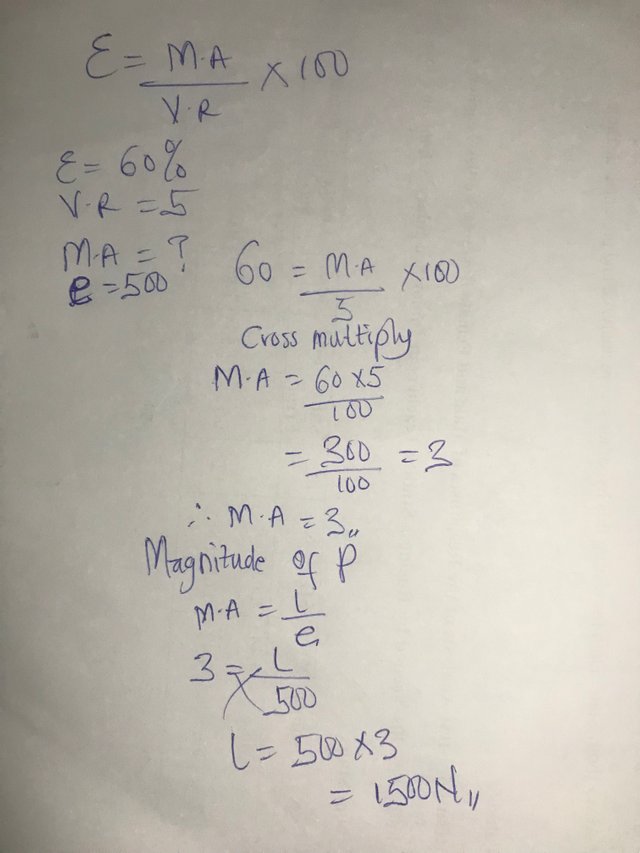 Ɛ = M.A / V.R × 100
Ɛ = 60%
V.R = 5
M.A = ?
e = 500
60 = M.A / 5 × 100
Cross multiply
M.A = 60 × 5 / 100
= 300 / 100 = 3
∴ M.A = 3,,
Magnitude of P
M.A = L / e
3 = L / 500
L = 500 × 3
= 1500N,,